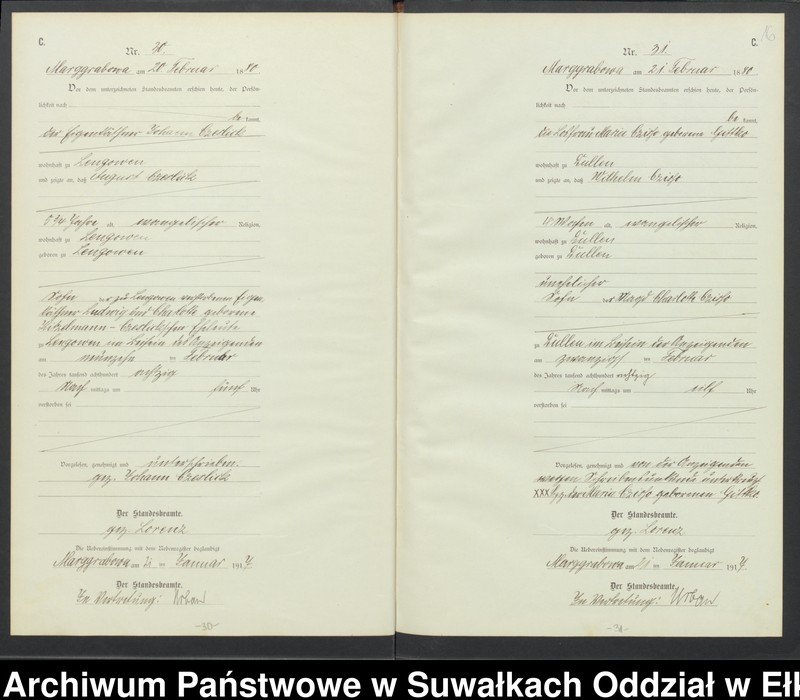 C.
Nr. 30.
Marggrabowa am 20 Februar 1880
Vor dem unterzeichneten Standesbeamten erschien heute, der Persön-
lichkeit nach
be kannt,
der Eigenkäthner Johann
wohnhaft zu Lengowen
und zeigte an, daß August
3/4 Jahre alt, evangelischer Religion,
wohnhaft zu Lengowen
geboren zu Lengowen
Sohn der zu Lengowen verstorbenen Eigen
käthner Ludwig und Charlotte geborene
Eheleute
zu Lengowen im Beisein des Anzeigenden
am neunzehn ten Februar
des Jahres tausend achthundert achtzig
Nach mittags um fünf Uhr
verstorben sei
Vorgelesen, genehmigt und unterschrieben.
gez. Johann
Der Standesbeamte.
gez. Lorenz
Die Uebereinstimmung mit dem Nebenregister beglaubigt
Marggrabowa am 21 ten Januar 191
Der Standesbeamte.
In Vertretung: Urban
-30-
16
C.
Nr. 31.
Marggrabowa am 21 Februar 1880
Vor dem unterzeichneten Standesbeamten erschien heute, der Persön-
lichkeit nach
be kannt,
die Losfrau Maria geborene
wohnhaft zu Dullen
und zeigte an, daß Wilhelm
11 Wochen alt, evangelischer Religion,
wohnhaft zu Dullen
geboren zu Dullen
unehelicher
Sohn der Magd Charlotte
zu Dullen im Beisein der Anzeigenden
am zwanzigsten Februar
des Jahres tausend achthundert achtzig
Nach mittags um elf Uhr
verstorben sei
Vorgelesen, genehmigt und von der Anzeigenden
wegen Schreibensunkunde unterkreuzt
XXX Maria geborenen
Der Standesbeamte.
gez. Lorenz
Die Uebereinstimmung mit dem Nebenregister beglaubigt
Marggrabowa am 21 ten Januar 191
Der Standesbeamte.
In Vertretung: Urban
-31-
Archiwum Państwowe w Suwałkach Oddział w Eł